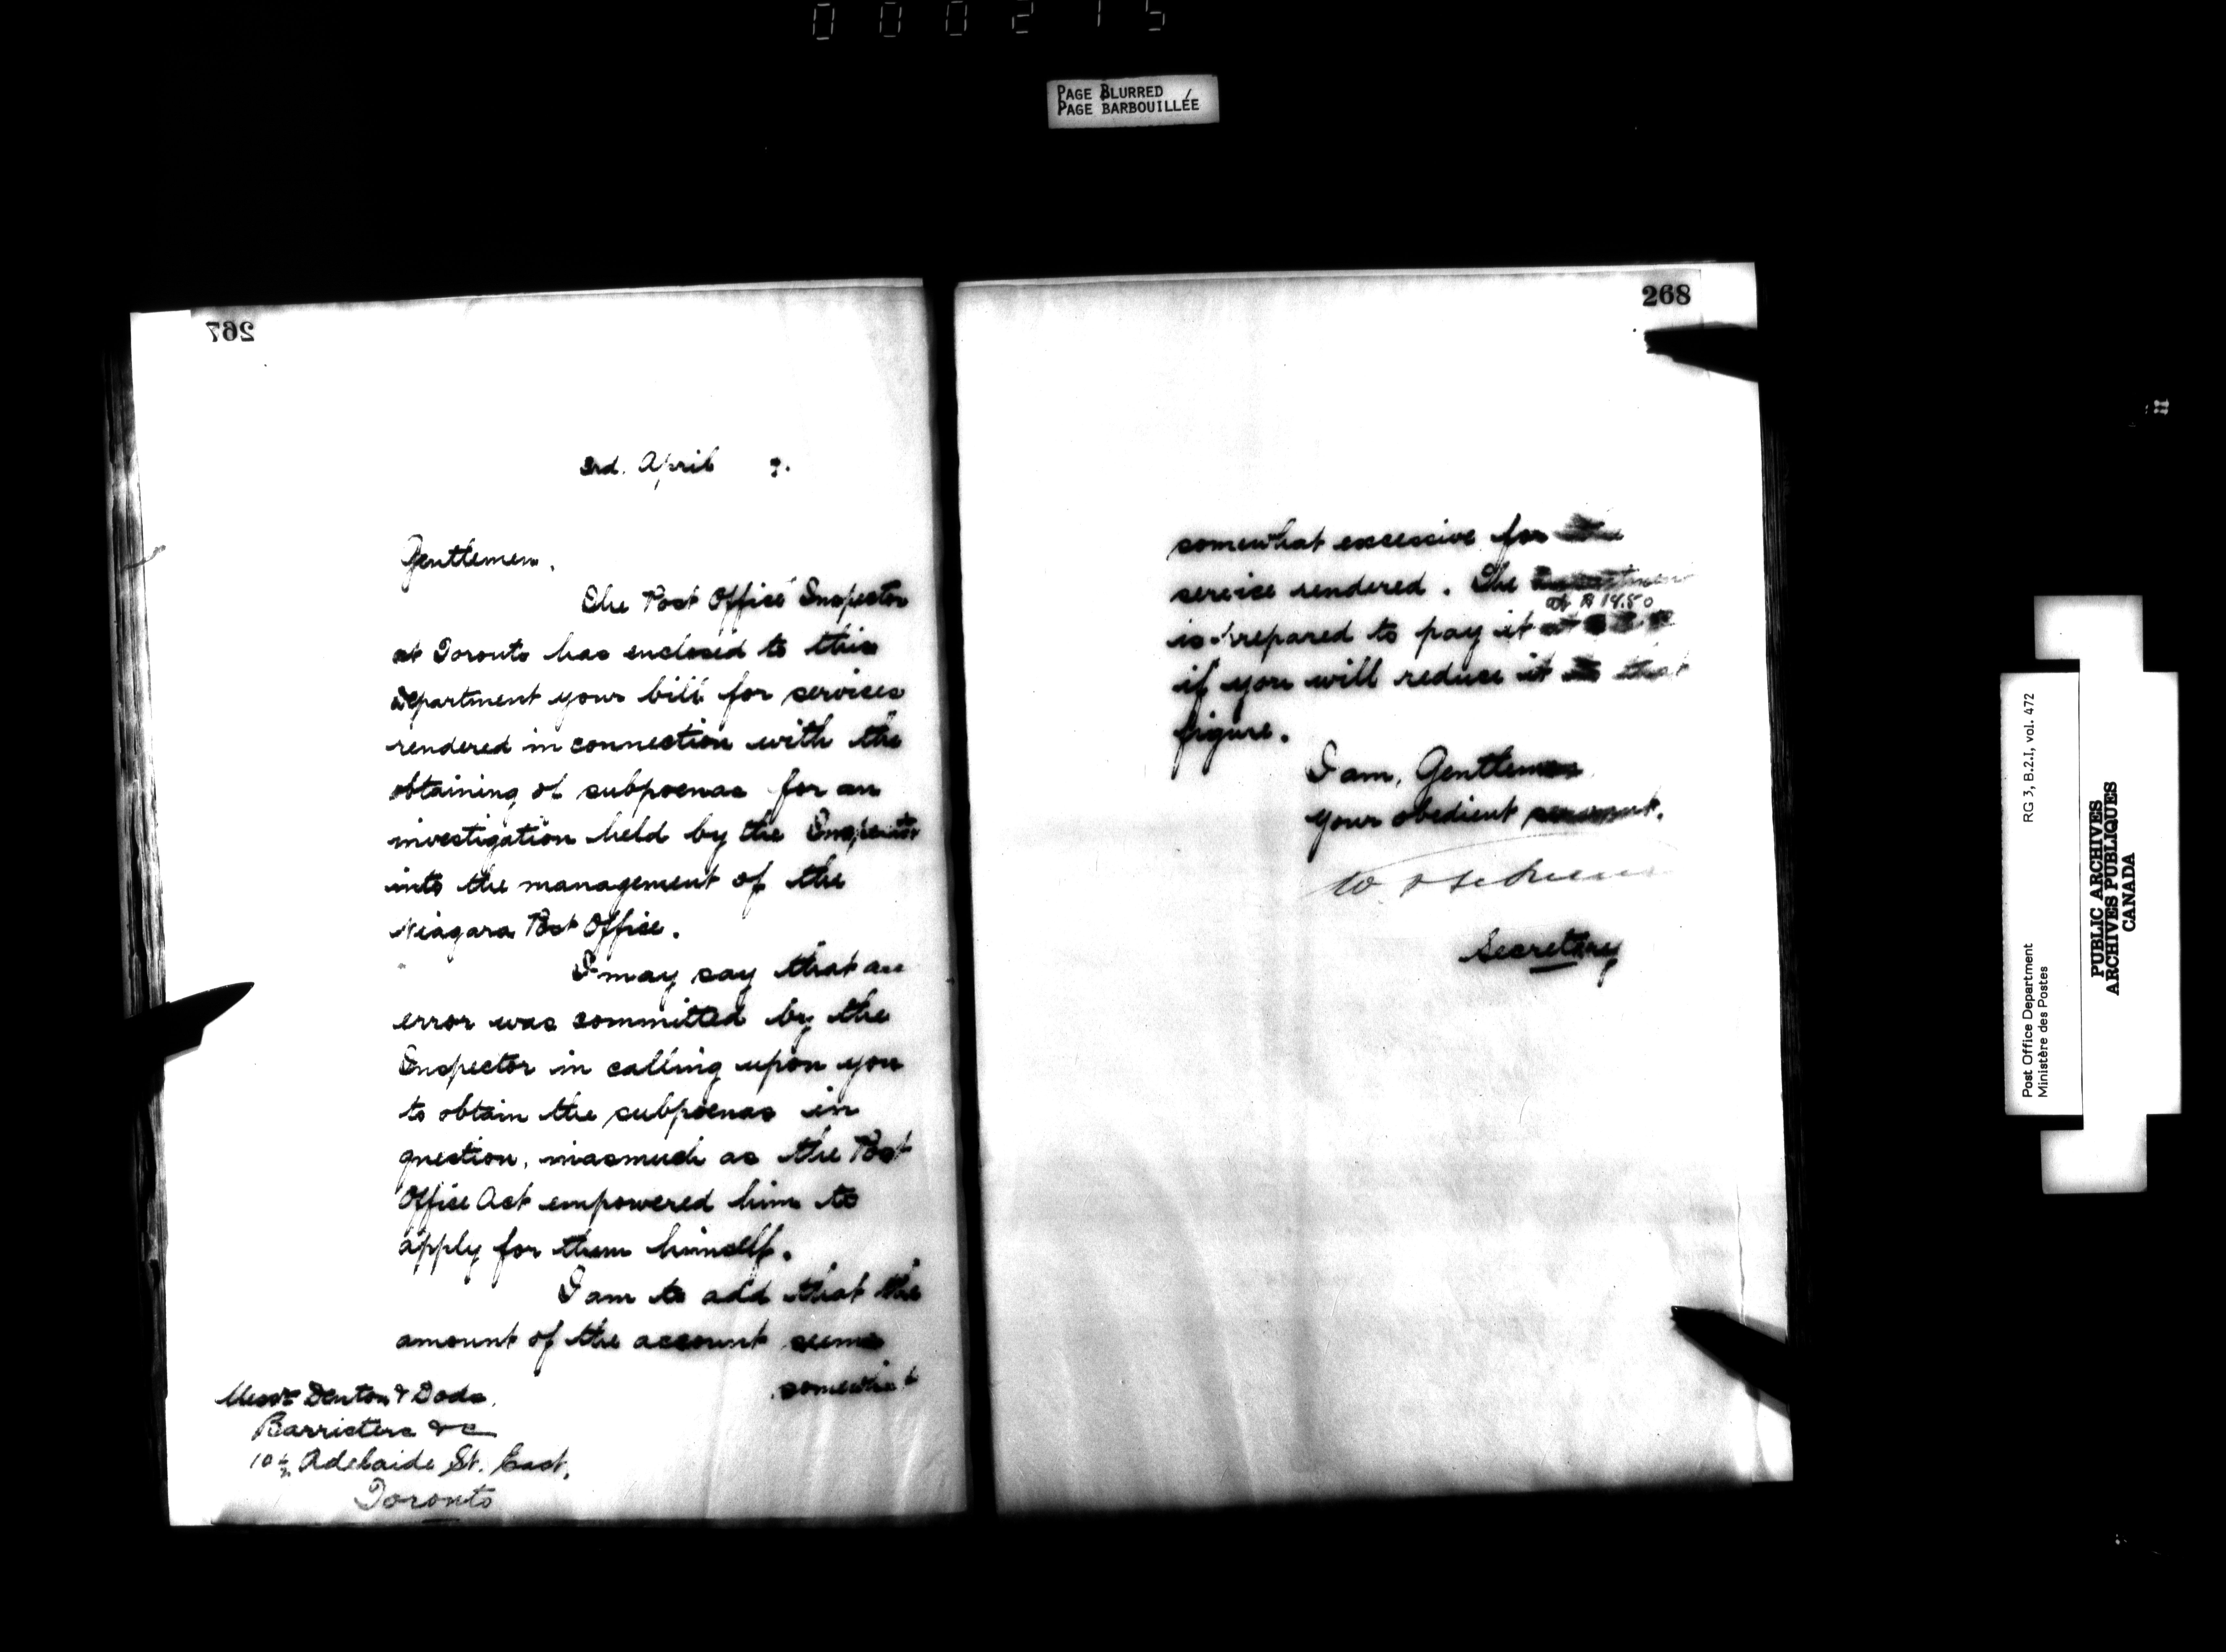 000215
PAGE BLURRED
PAGE BARBOUILLÉE
267
3rd. April
Gentlemen,
The Post Office Inspector
at Toronto has enclosed to this
department your bill for services
rendered in connection with the
obtaining of subpoenas for an
investigation held by the Inspector
into the management of the
Niagara Post Office.
I may say that an
error was committed by the
Inspector in calling upon you
to obtain the subpoenas in
question, inasmuch as the Post
Office Act empowered him to
apply for them himself.
I am to add that the
amount of the account seems
somewhat
Messrs Denton & Dods,
Barristers &c
10½ Adelaide St. East,
Toronto
268
somewhat excessive for the
service rendered. The Department
at $14.50
is prepared to pay it at
if you will reduce it to that
figure.
I am, Gentlemen
Your obedient servant.
W.
Secretary
Post Office Department
Ministère des Postes
RG 3, B.2.I, vol. 472
PUBLIC ARCHIVES
ARCHIVES PUBLIQUES
CANADA